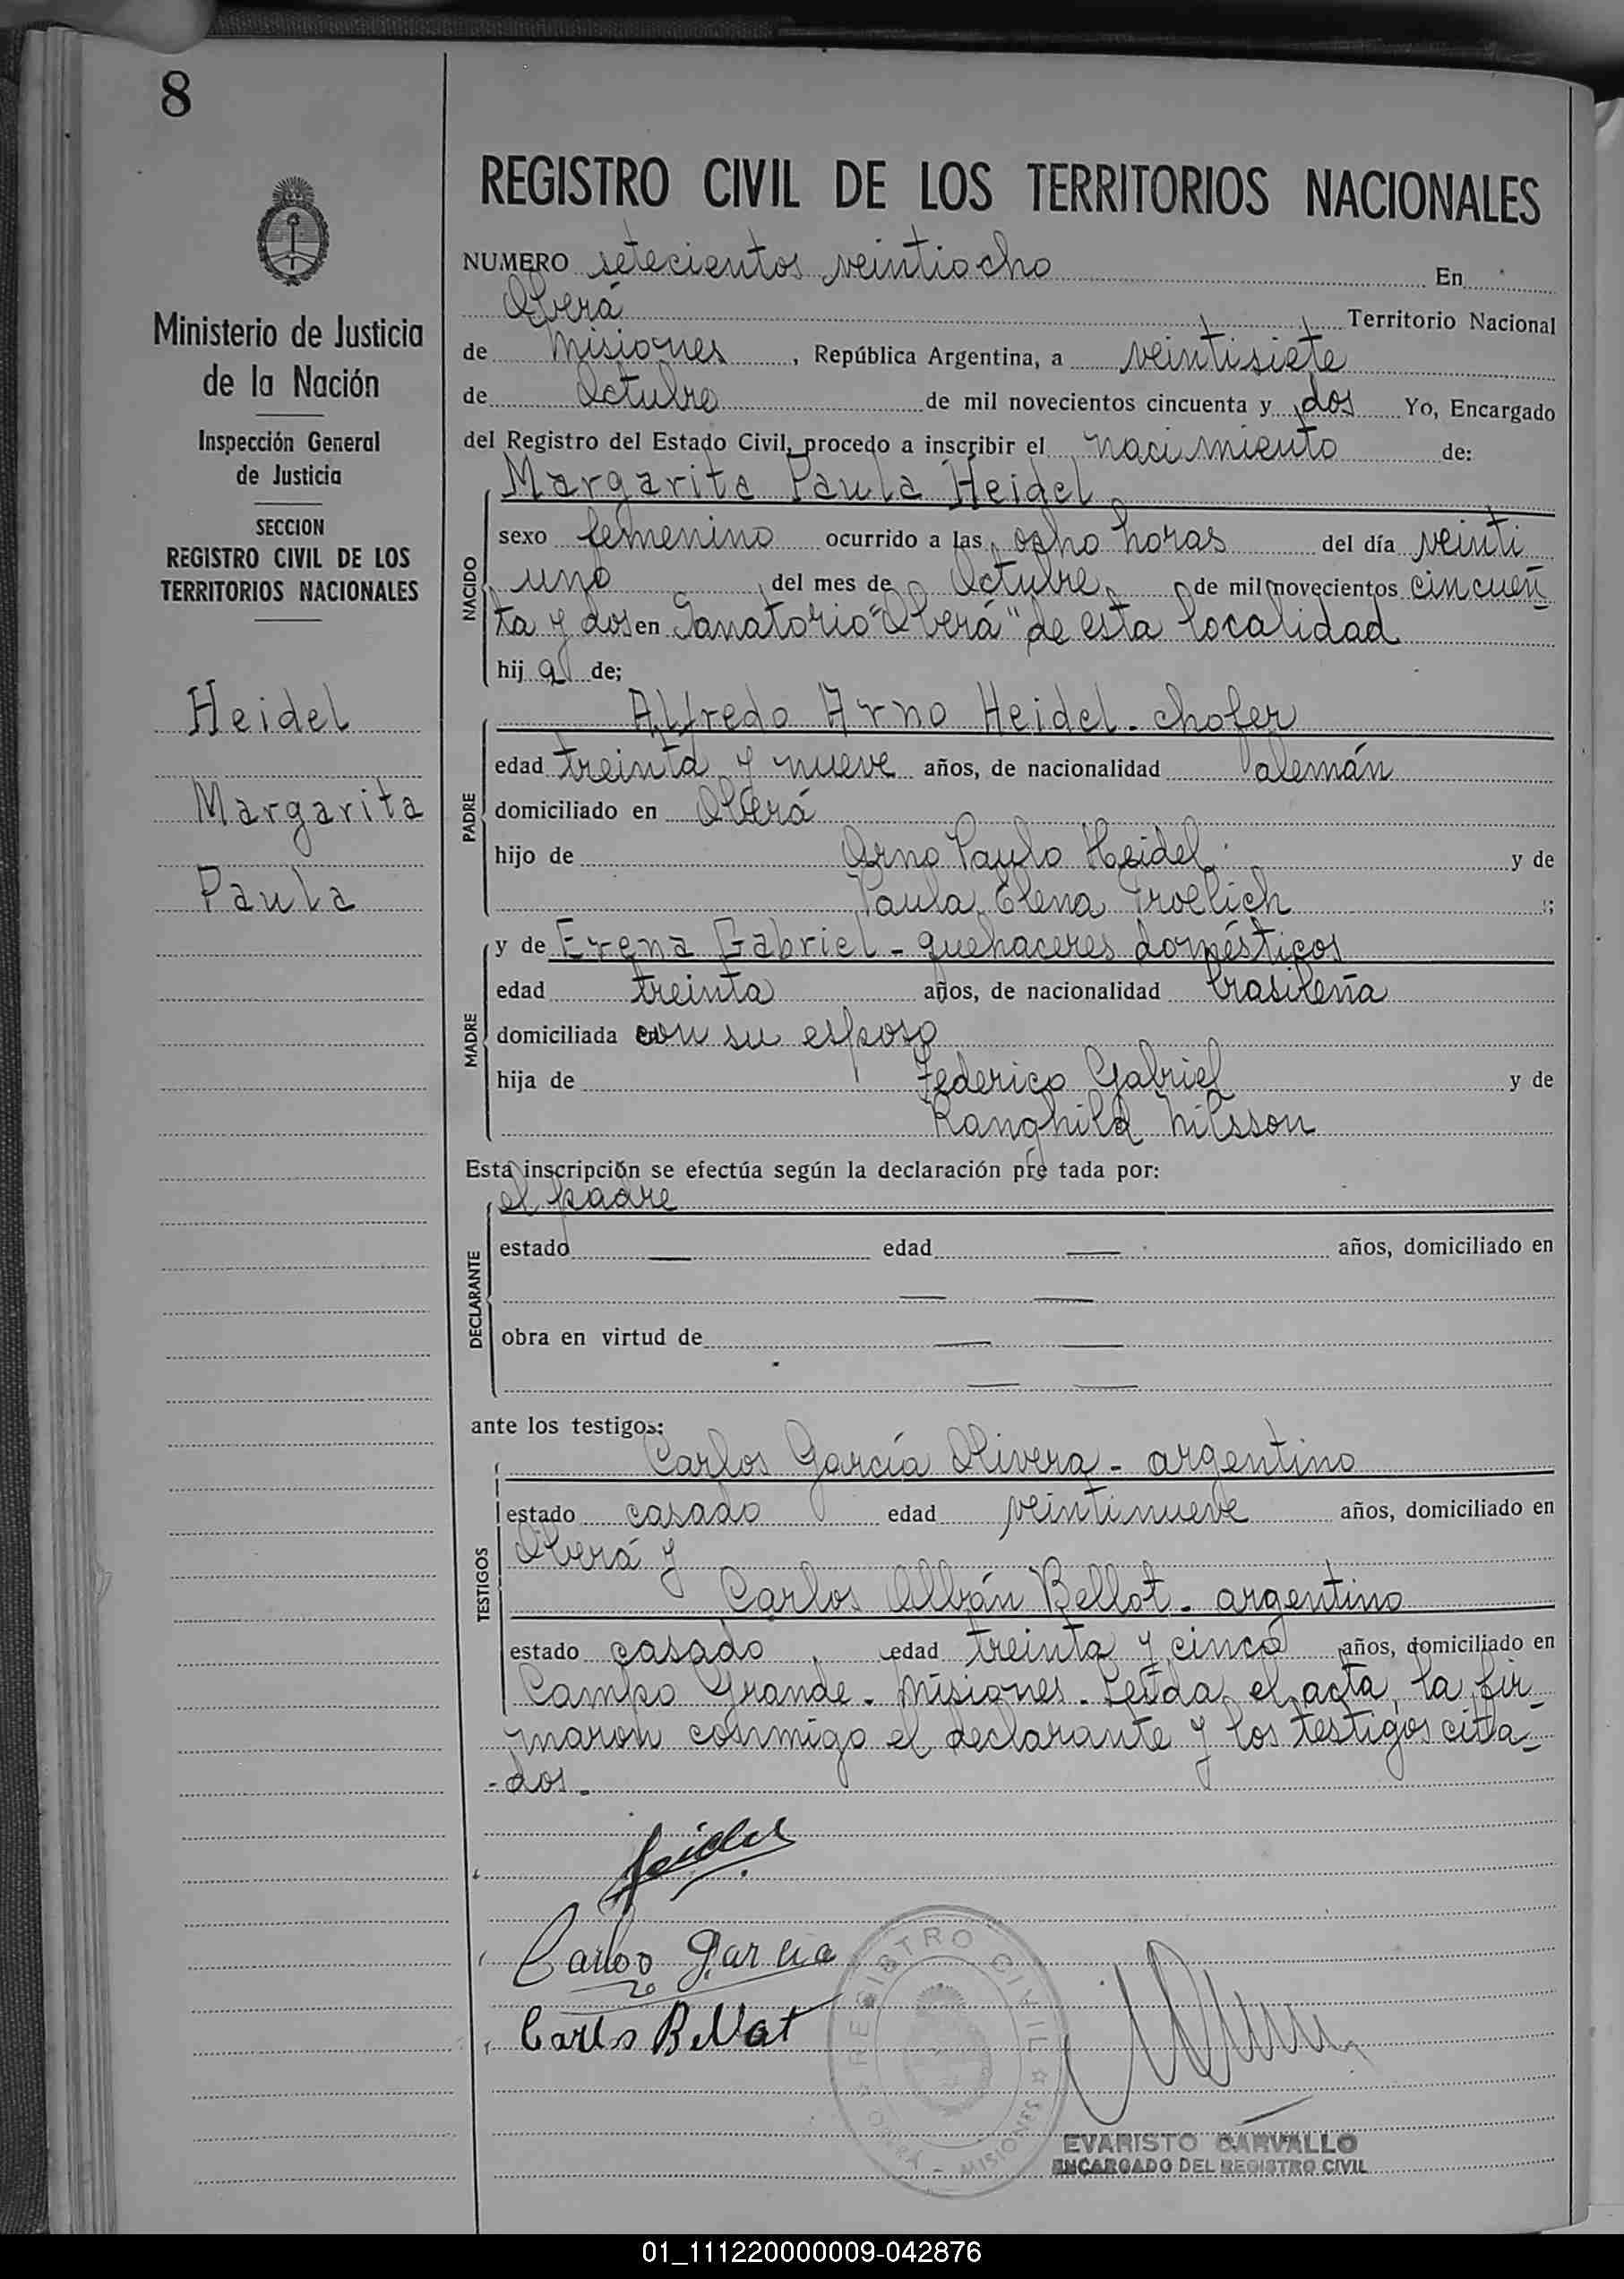 8
REGISTRO CIVIL DE LOS TERRITORIOS NACIONALES
Ministerio de Justicia
de la Nación
Inspección General
de Justicia
SECCION
REGISTRO CIVIL DE LOS
TERRITORIOS NACIONALES
Heidel
Margarita
Paula
NUMERO setecientos veintiocho En
Oberá Territorio Nacional
de Misiones, República Argentina, a veintisiete
de Octubre de mil novecientos cincuenta y dos Yo, Encargado
del Registro del Estado Civil, procedo a inscribir el nacimiento de:
Margarita Paula Heidel
NACIDO
sexo femenino ocurrido a las ocho horas del día veinti
uno del mes de Octubre de mil novecientos cincuen
ta y dos en Sanatorio "Oberá" de esta localidad
hija de;
PADRE
Alfredo Arno Heidel - chofer
edad treinta y nueve años, de nacionalidad alemán
domiciliado en Oberá
hijo de Arno Paulo Heidel y de
Paula Elena Froelich ;
MADRE
y de Erena Gabriel - quehaceres domésticos
edad treinta años, de nacionalidad brasileña
domiciliada con su esposo
hija de Federico Gabriel y de
Ranghild Nilsson
Esta inscripción se efectúa según la declaración pre tada por:
DECLARANTE
el padre
estado — edad — años, domiciliado en
— —
obra en virtud de — —
— —
ante los testigos:
TESTIGOS
Carlos García Olivera - argentino
estado casado edad veintinueve años, domiciliado en
Oberá y
Carlos Albán Bellot - argentino
estado casado edad treinta y cinco años, domiciliado en
Campo Grande - Misiones - Leída el acta, la fir-
maron conmigo el declarante y los testigos cita-
-dos.
Heidel
Carlos Garcia
Carlos Bellot
REGISTRO CIVIL
OBERÁ - MISIONES
EVARISTO CARVALLO
ENCARGADO DEL REGISTRO CIVIL
01_111220000009-042876